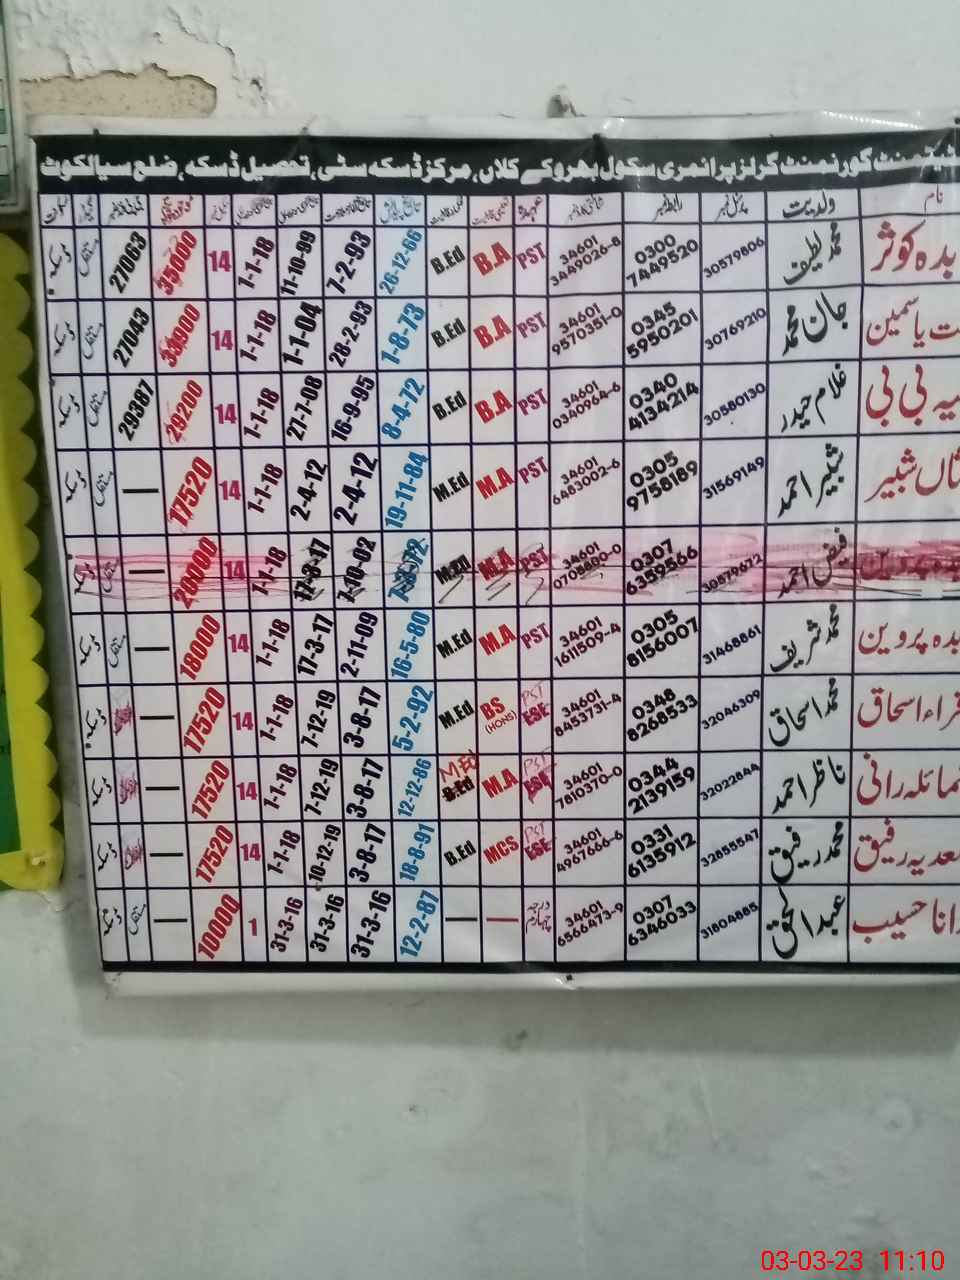 گورنمنٹ گرلز پرائمری سکول بھروکے کلاں، مرکز ڈسکہ سٹی، تحصیل ڈسکہ، ضلع سیالکوٹ
نام ولدیت پرسنل نمبر رابطہ نمبر شناختی کارڈ نمبر عہدہ
کوثر محمد لطیف 30579806 0300 7449520 34601 3449026-8 PST B.A B.Ed 26-12-66 7-2-93 11-10-99 1-1-18 14 35000 27063 مستقل ڈسکہ
یاسمین جان محمد 30769210 0345 5950201 34601 9570351-0 PST B.A B.Ed 1-8-73 28-2-93 1-1-04 1-1-18 14 33900 27043 مستقل ڈسکہ
بی بی غلام حیدر 30580130 0340 4134214 34601 0340964-6 PST B.A B.Ed 8-4-72 16-9-95 27-7-08 1-1-18 14 29200 29387 مستقل ڈسکہ
شبیر شبیر احمد 31569149 0305 9758189 34601 6483002-6 PST M.A M.Ed 19-11-84 2-4-12 2-4-12 1-1-18 14 17520 — مستقل ڈسکہ
فیض احمد 30579672 0307 6359566 34601 PST M.A M.Ed 1-10-02 17-3-17 1-1-18 14 20000 — ڈسکہ
پروین محمد شریف 31468861 0305 8156007 34601 1611509-4 PST M.A M.Ed 16-5-80 2-11-09 17-3-17 1-1-18 14 18000 — مستقل ڈسکہ
اسحاق محمد اسحاق 32046309 0348 8268533 34601 8453731-4 PST ESE BS (HONS) M.Ed 5-2-92 3-8-17 7-12-19 1-1-18 14 17520 — ڈسکہ
رانی ناظر احمد 32022844 0344 2139159 34601 7810370-0 PST ESE M.A M.Ed B.Ed 12-12-86 3-8-17 7-12-19 1-1-18 14 17520 — ڈسکہ
رفیق محمد رفیق 32855547 0331 6135912 34601 4967666-6 PST ESE MCS B.Ed 18-8-91 3-8-17 10-12-19 1-1-18 14 17520 — ڈسکہ
حسیب عبدالحق 31804885 0307 6346033 34601 6566473-9 درجہ چہارم — — 12-2-87 31-3-16 31-3-16 31-3-16 1 10000 — مستقل ڈسکہ
03-03-23 11:10